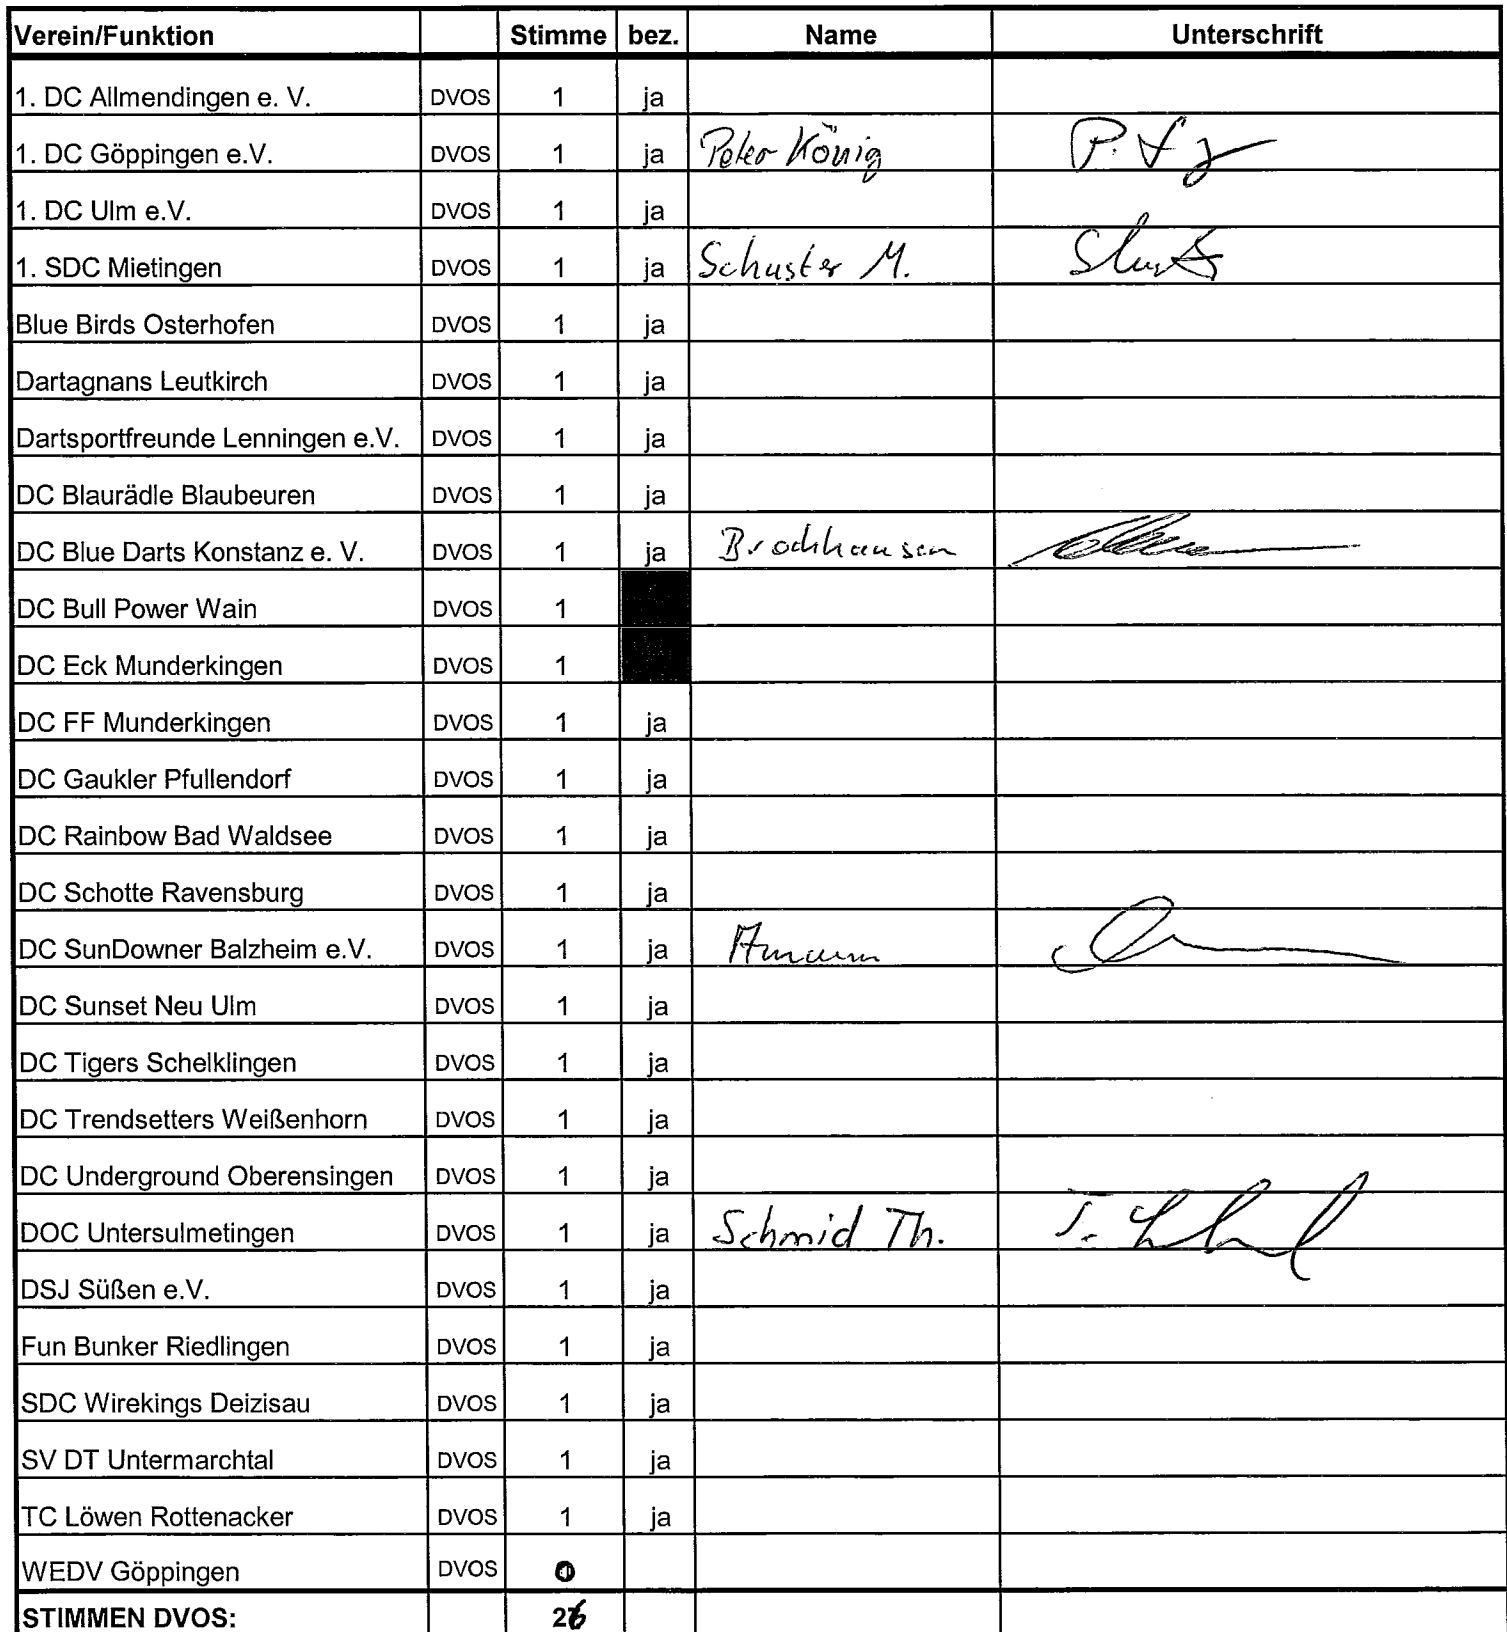 Verein/Funktion Stimme bez. Name Unterschrift
1. DC Allmendingen e. V. DVOS 1 ja
1. DC Göppingen e.V. DVOS 1 ja Peter König
1. DC Ulm e.V. DVOS 1 ja
1. SDC Mietingen DVOS 1 ja Schuster M.
Blue Birds Osterhofen DVOS 1 ja
Dartagnans Leutkirch DVOS 1 ja
Dartsportfreunde Lenningen e.V. DVOS 1 ja
DC Blaurädle Blaubeuren DVOS 1 ja
DC Blue Darts Konstanz e. V. DVOS 1 ja Brockhausen
DC Bull Power Wain DVOS 1
DC Eck Munderkingen DVOS 1
DC FF Munderkingen DVOS 1 ja
DC Gaukler Pfullendorf DVOS 1 ja
DC Rainbow Bad Waldsee DVOS 1 ja
DC Schotte Ravensburg DVOS 1 ja
DC SunDowner Balzheim e.V. DVOS 1 ja
DC Sunset Neu Ulm DVOS 1 ja
DC Tigers Schelklingen DVOS 1 ja
DC Trendsetters Weißenhorn DVOS 1 ja
DC Underground Oberensingen DVOS 1 ja
DOC Untersulmetingen DVOS 1 ja Schmid Th.
DSJ Süßen e.V. DVOS 1 ja
Fun Bunker Riedlingen DVOS 1 ja
SDC Wirekings Deizisau DVOS 1 ja
SV DT Untermarchtal DVOS 1 ja
TC Löwen Rottenacker DVOS 1 ja
WEDV Göppingen DVOS 0
STIMMEN DVOS: 26